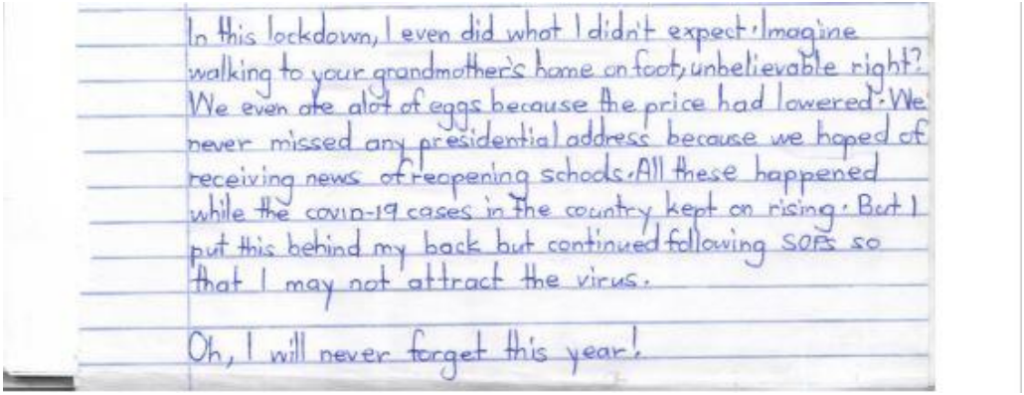 In this lockdown, I even did what I didn't expect. Imagine
walking to your grandmother's home on foot, unbelievable right?
We even ate alot of eggs because the price had lowered. We
never missed any presidential address because we hoped of
receiving news of reopening schools. All these happened
while the COVID-19 cases in the country kept on rising. But I
put this behind my back but continued following SOPs so
that I may not attract the virus.
Oh, I will never forget this year!